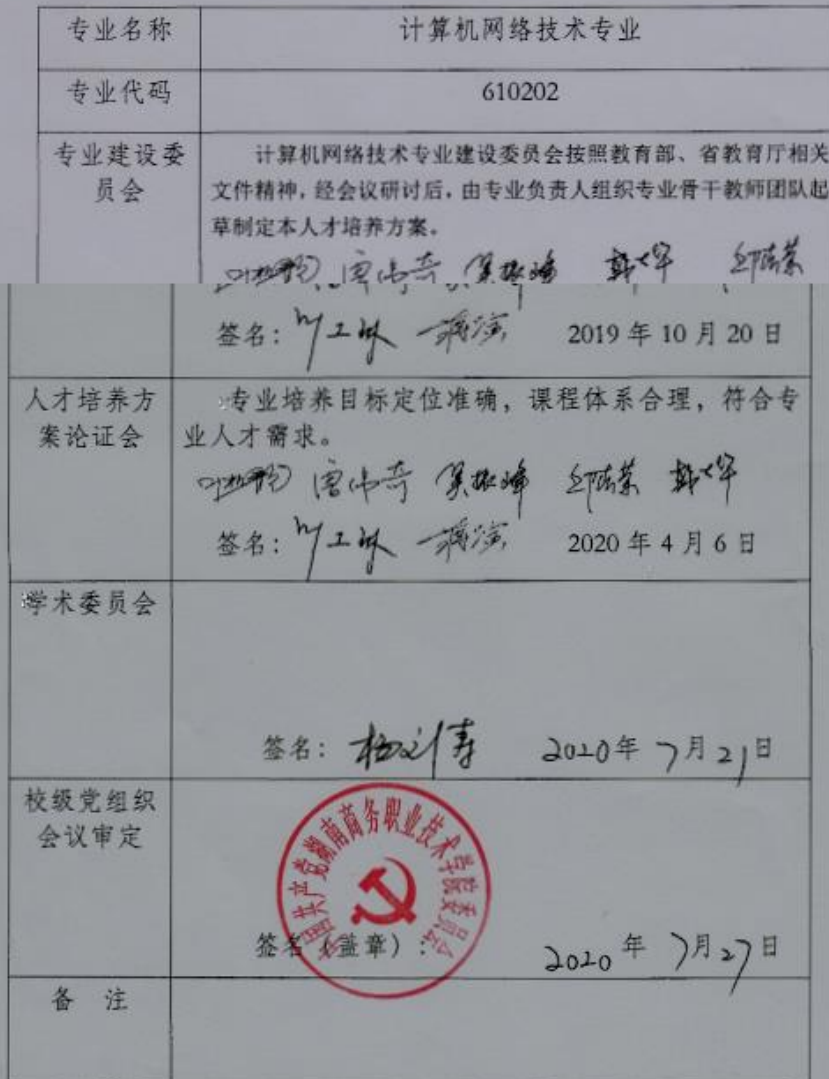 专业名称 计算机网络技术专业
专业代码 610202
专业建设委员会 计算机网络技术专业建设委员会按照教育部、省教育厅相关
文件精神，经会议研讨后，由专业负责人组织专业骨干教师团队起
草制定本人才培养方案。
唐伟奇 吴振峰
签名： 2019 年 10 月 20 日
人才培养方案论证会 专业培养目标定位准确，课程体系合理，符合专
业人才需求。
唐伟奇 吴振峰
签名： 2020 年 4 月 6 日
学术委员会
签名： 2020年 7月21日
校级党组织
会议审定
中国共产党湖南商务职业技术学院委员会
签名（盖章）： 2020 年 7月27日
备 注